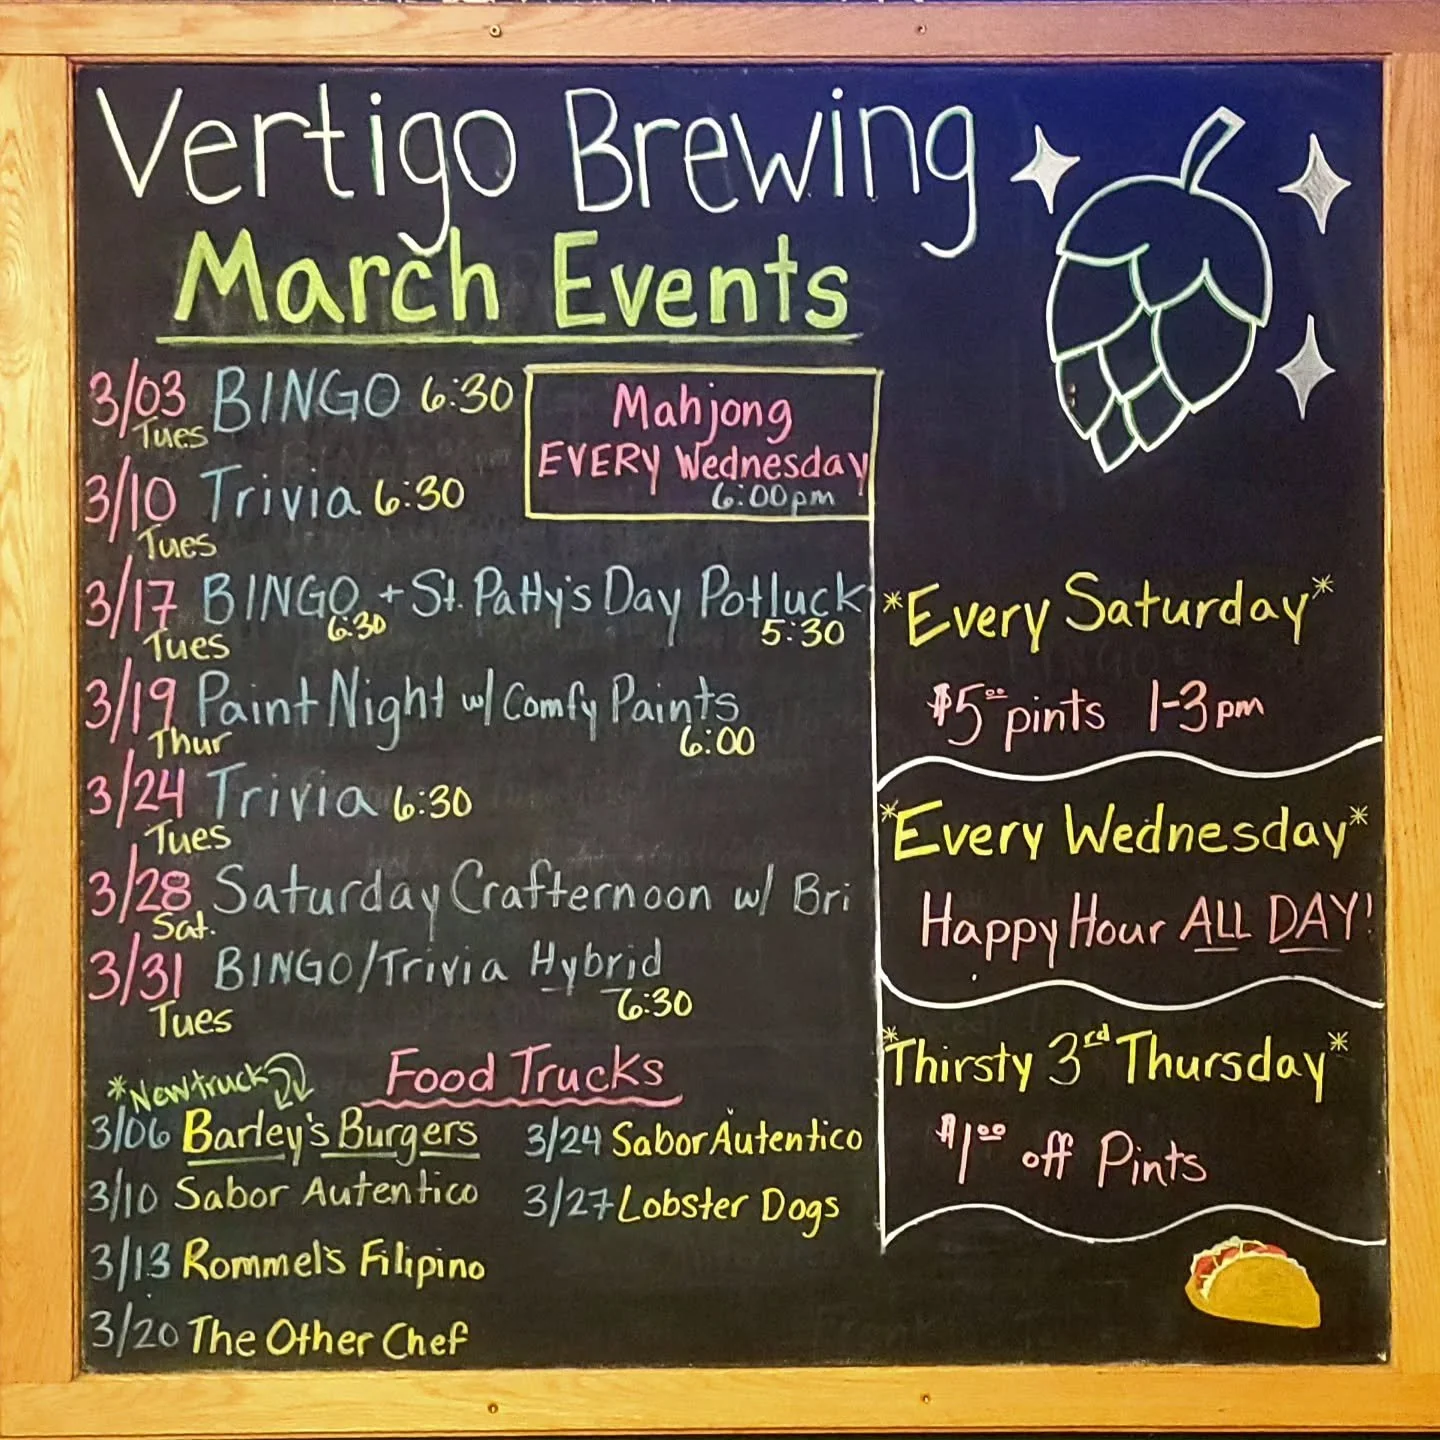 Vertigo Brewing
March Events
3/03 BINGO 6:30
Tues
3/10 Trivia 6:30
Tues
3/17 BINGO 6:30 + St. Patty's Day Potluck
Tues 5:30
3/19 Paint Night w/ Comfy Paints
Thur 6:00
3/24 Trivia 6:30
Tues
3/28 Saturday Crafternoon w/ Bri
Sat.
3/31 BINGO/Trivia Hybrid
Tues 6:30
Mahjong
EVERY Wednesday
6:00pm
*Every Saturday*
$5.00 pints 1-3pm
*Every Wednesday*
Happy Hour ALL DAY!
*Thirsty 3rd Thursday*
$1.00 off Pints
Food Trucks
*New truck
3/06 Barley's Burgers
3/10 Sabor Autentico
3/13 Rommel's Filipino
3/20 The Other Chef
3/24 Sabor Autentico
3/27 Lobster Dogs